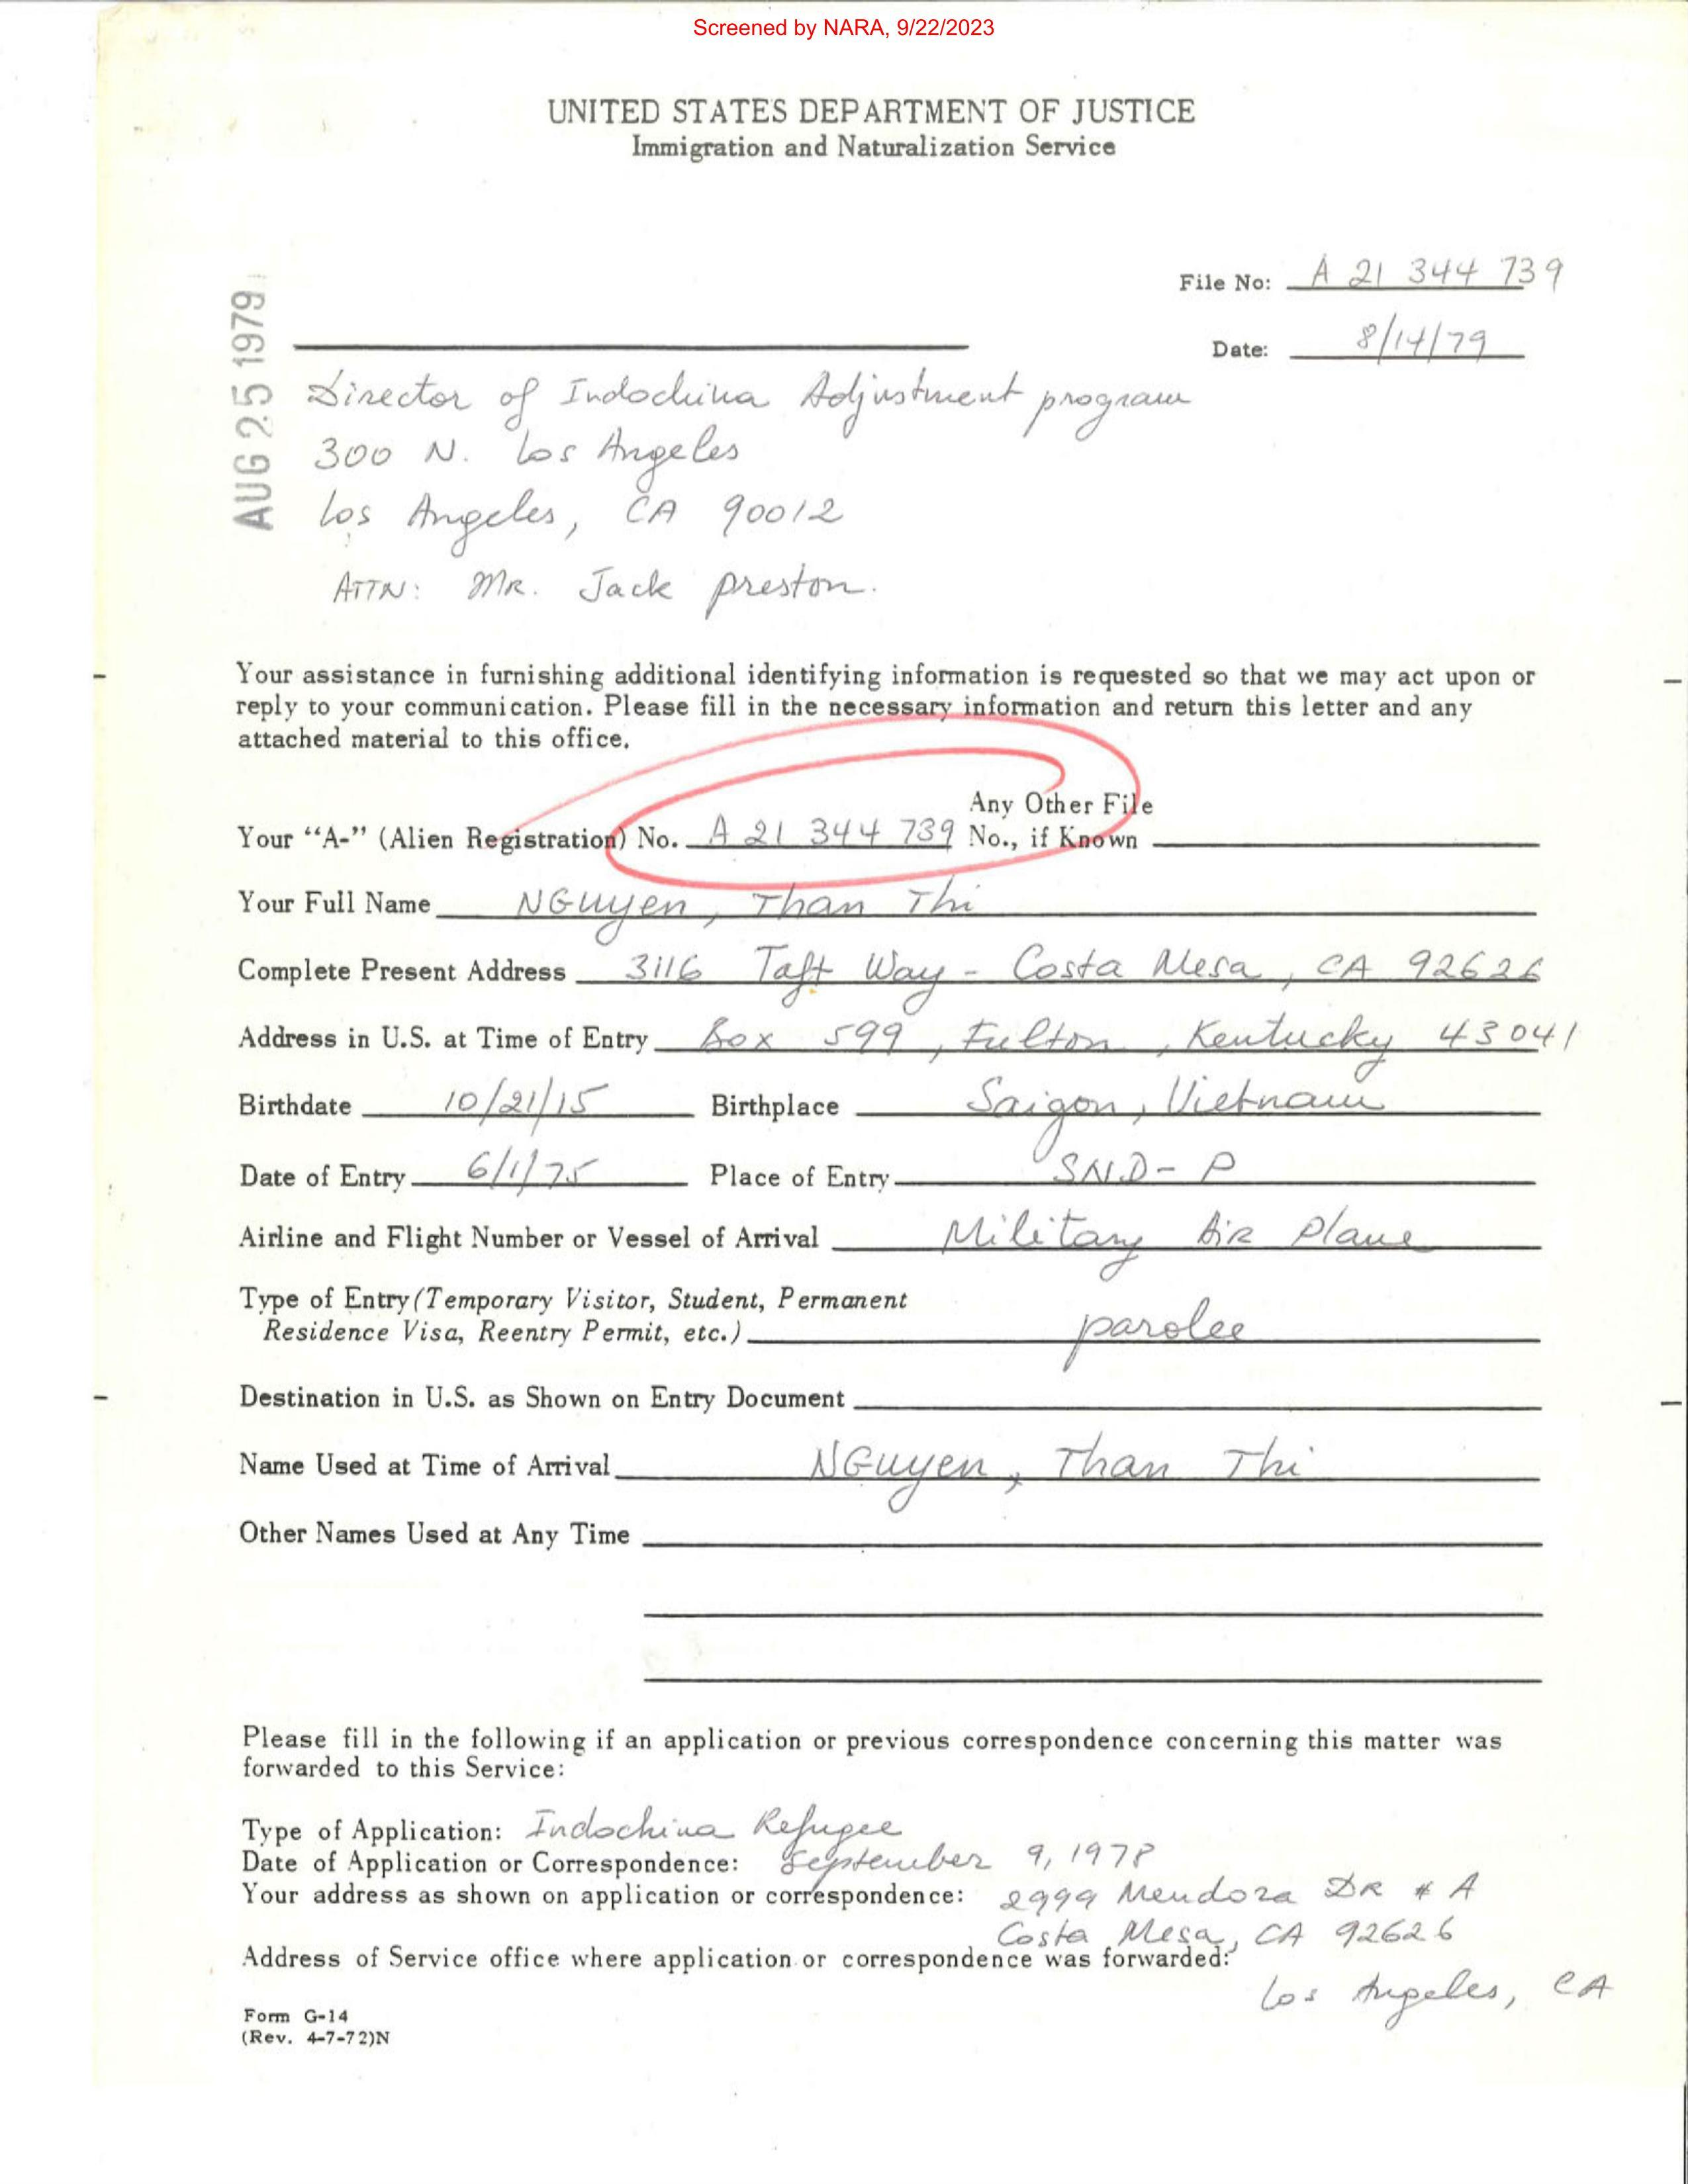 Screened by NARA, 9/22/2023
UNITED STATES DEPARTMENT OF JUSTICE
Immigration and Naturalization Service
File No: A 21 344 739
AUG 25 1979
Date: 8/14/79
Director of Indochina Adjustment program
300 N. Los Angeles
Los Angeles, CA 90012
ATTN: MR. Jack preston.
Your assistance in furnishing additional identifying information is requested so that we may act upon or
reply to your communication. Please fill in the necessary information and return this letter and any
attached material to this office.
Any Other File
Your "A-" (Alien Registration) No. A 21 344 739 No., if Known
Your Full Name NGuyen, Than Thi
Complete Present Address 3116 Taft Way - Costa Mesa, CA 92626
Address in U.S. at Time of Entry Box 599, Fulton, Kentucky 43041
Birthdate 10/21/15 Birthplace Saigon, Vietnam
Date of Entry 6/1/75 Place of Entry SND - P
Airline and Flight Number or Vessel of Arrival Military Air Plane
Type of Entry (Temporary Visitor, Student, Permanent
Residence Visa, Reentry Permit, etc.) parolee
Destination in U.S. as Shown on Entry Document
Name Used at Time of Arrival NGuyen, Than Thi
Other Names Used at Any Time
Please fill in the following if an application or previous correspondence concerning this matter was
forwarded to this Service:
Type of Application: Indochina Refugee
Date of Application or Correspondence: September 9, 1978
Your address as shown on application or correspondence: 2999 Mendoza DR # A
Costa Mesa, CA 92626
Address of Service office where application or correspondence was forwarded:
Los Angeles, CA
Form G-14
(Rev. 4-7-72)N